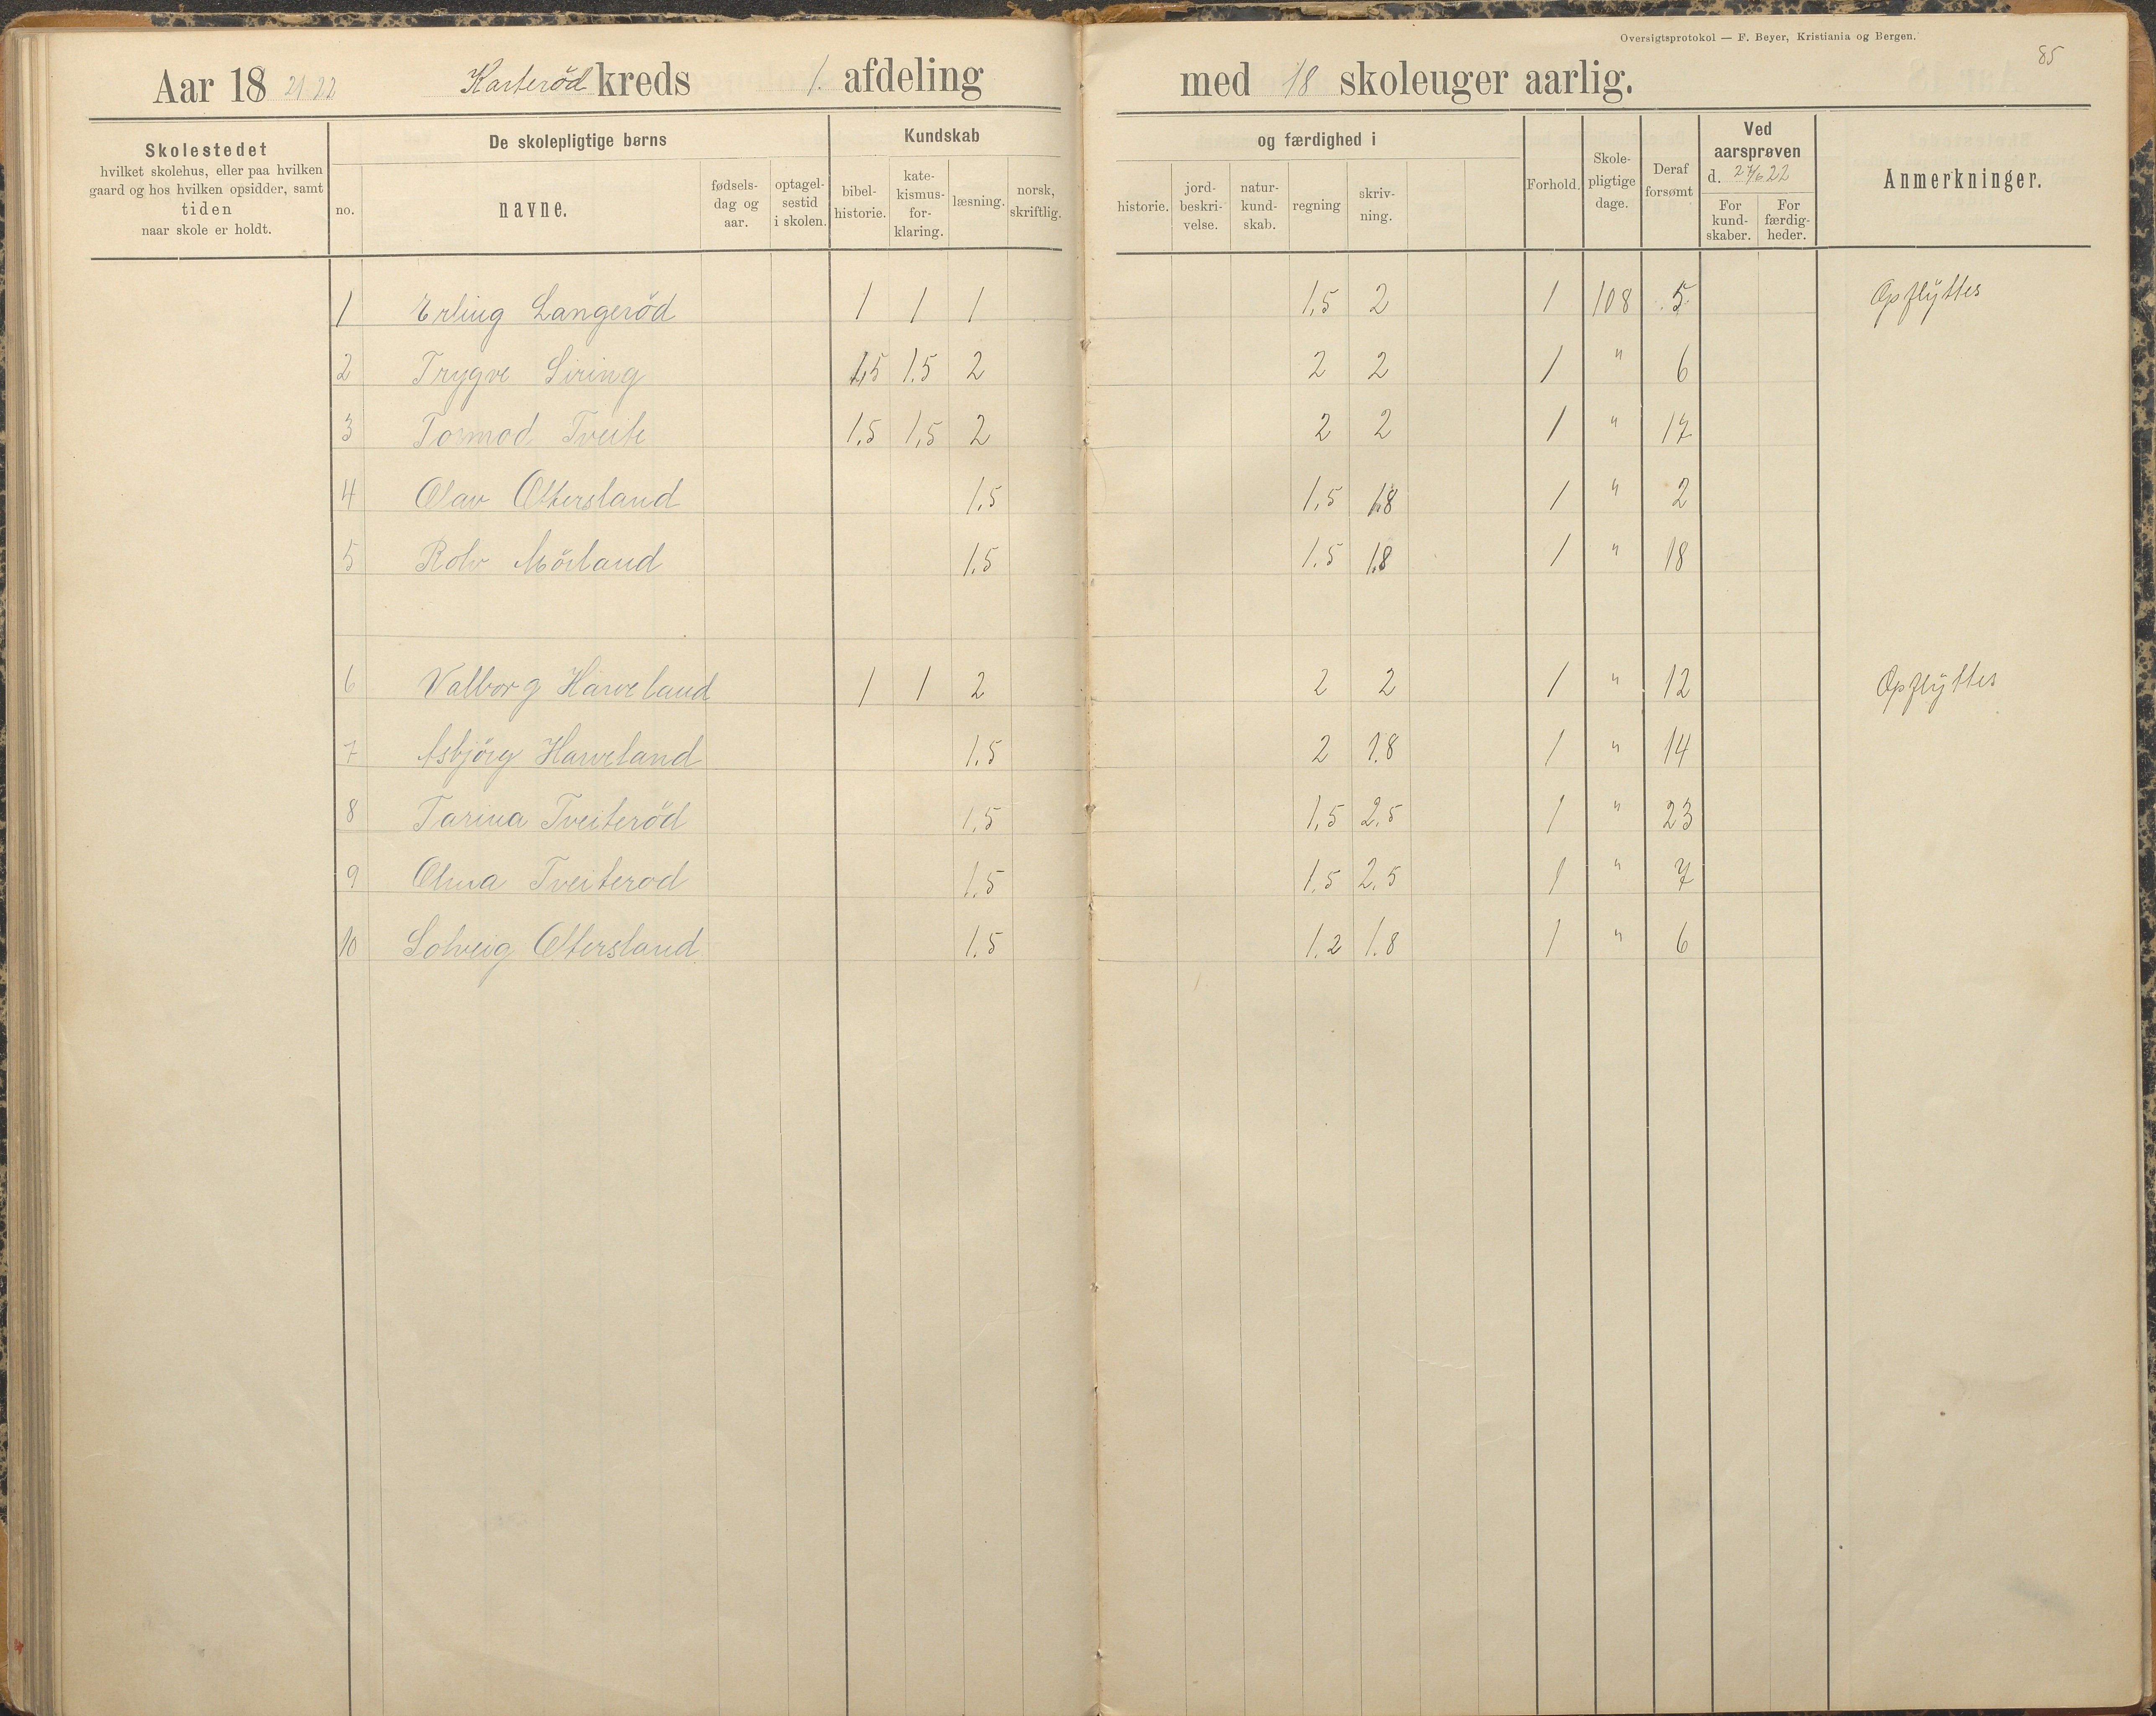 Oversigtsprotokol — F. Beyer, Kristiania og Bergen.
85
Aar 18 21 22 Karterød kreds 1. afdeling med 18 skoleuger aarlig.
Skolestedet
hvilket skolehus, eller paa hvilken
gaard og hos hvilken opsidder, samt
tiden
naar skole er holdt.
De skolepligtige børns
no. navne. fødsels-dag og aar. optagel-sestid i skolen.
Kundskab og færdighed i
bibel-historie. kate-kismus-for-klaring. læsning. norsk, skriftlig. historie. jord-beskri-velse. natur-kund-skab. regning skriv-ning.
Forhold. Skole-pligtige dage. Deraf forsømt
Ved aarsprøven d. 27/6 22
For kund-skaber. For færdig-heder.
Anmerkninger.
1 Erling Langerød 1 1 1 1,5 2 1 108 5 Opflyttes
2 Trygve Siring 1,5 1.5 2 2 2 1 " 6
3 Tormod Tveite 1.5 1,5 2 2 2 1 " 17
4 Olav Ottersland 1.5 1,5 1.8 1 " 2
5 Rolv Mörland 1.5 1.5 1.8 1 " 18
6 Valborg Haveland 1 1 2 2 2 1 " 12 Opflyttes
7 Asbjörg Haveland 1.5 2 1.8 1 " 14
8 Tarina Tveiteröd 1.5 1,5 2.5 1 " 23
9 Olma Tveiterod 1.5 1.5 2.5 1 " 7
10 Solveig Ottersland 1.5 1.2 1.8 1 " 6